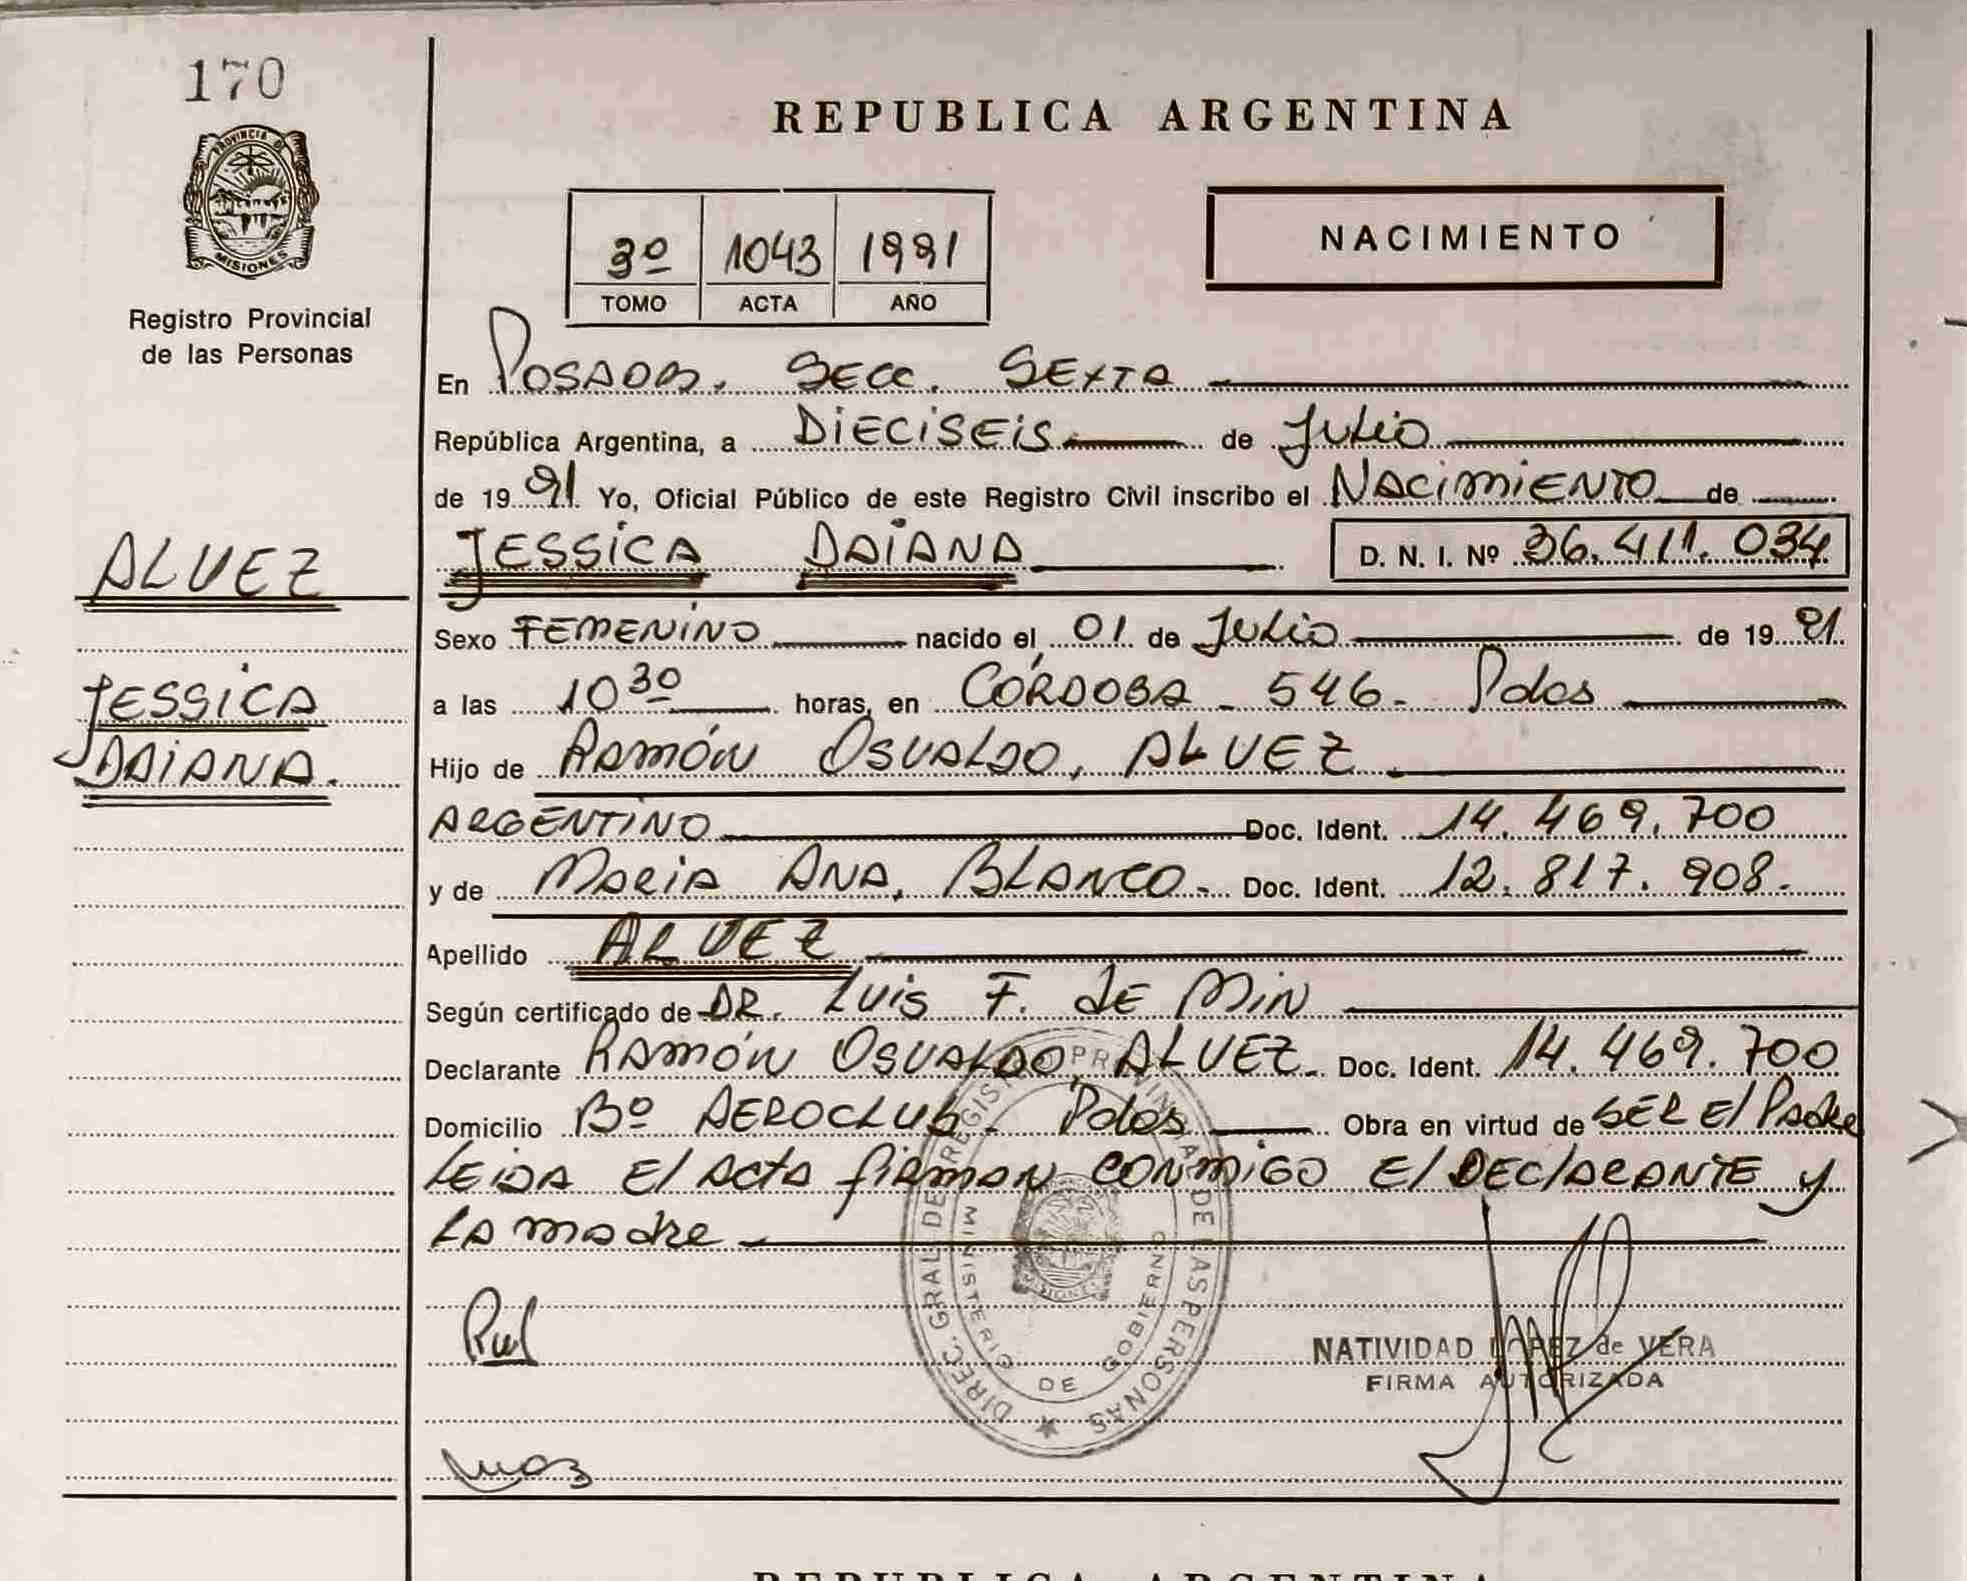 170
PROVINCIA DE
MISIONES
Registro Provincial
de las Personas
ALVEZ
JESSICA
DAIANA.
REPUBLICA ARGENTINA
3º 1043 1991
TOMO ACTA AÑO
NACIMIENTO
En POSADAS. SECC. SEXTA
República Argentina, a DIECISEIS de Julio
de 1991 Yo, Oficial Público de este Registro Civil inscribo el NACIMIENTO de
JESSICA DAIANA D. N. I. Nº 36.411.034
Sexo FEMENINO nacido el 01 de Julio de 1991
a las 10 30 horas, en CÓRDOBA - 546 - Pdas
Hijo de RAMÓN OSVALDO, ALVEZ
ARGENTINO Doc. Ident. 14.469.700
y de MARIA ANA, BLANCO - Doc. Ident. 12.817.908.
Apellido ALVEZ
Según certificado de DR. LUIS F. DE MIN
Declarante RAMÓN OSVALDO, ALVEZ - Doc. Ident. 14.469.700
Domicilio Bº AEROCLUB - Pdas Obra en virtud de SER El Padre
LEIDA El Acta firman CONMIGO El DECLARANTE y
LA madre
DIREC. GRAL DE REGISTRO PROVINCIAL DE LAS PERSONAS
MINISTERIO DE GOBIERNO
NATIVIDAD LOPEZ de VERA
FIRMA AUTORIZADA
REPUBLICA ARGENTINA